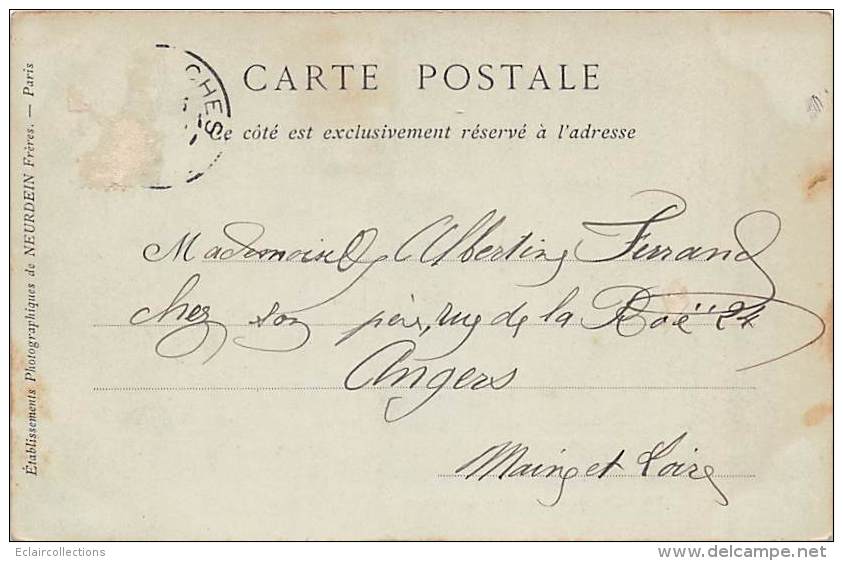 CARTE POSTALE
Ce côté est exclusivement réservé à l'adresse
CHES
Mademoiselle Albertine Ferrand
chez son père, rue de la Roë 24
Angers
Maine et Loire
Établissements Photographiques de NEURDEIN Frères. — Paris
Eclaircollections
http://www.delcampe.net